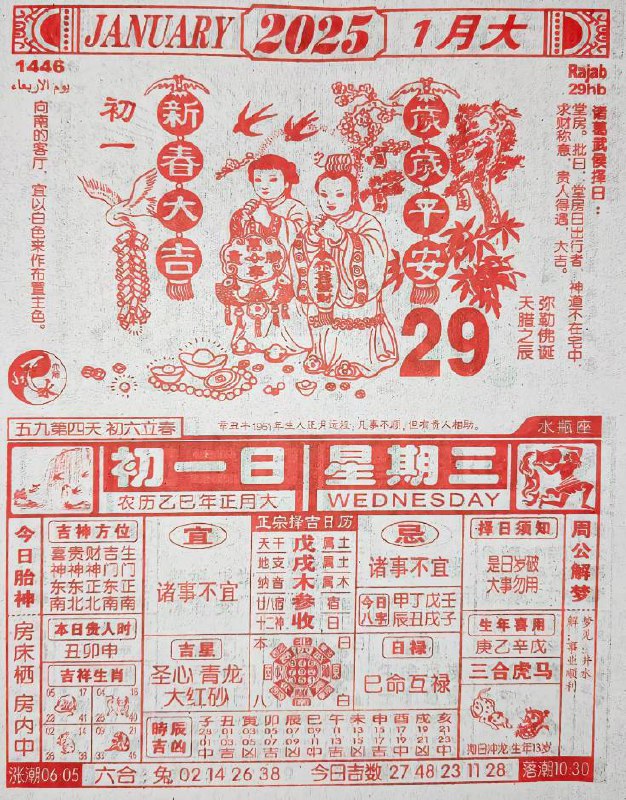 JANUARY 2025 1月大
1446
يوم الاربعاء
Rajab
29hb
初一
新春大吉
歲歲平安
向南的客厅，宜以白色来作布置主色。
诸葛武侯择日：
堂房。批曰：堂房日出行者，神道不在宅中，
求财称意，贵人得遇，大吉。
弥勒佛诞
天腊之辰
29
五九第四天 初六立春
辛丑牛1961年生人正月运程：凡事不顺，但有贵人相助。
水瓶座
初一日
星期三
农历乙巳年正月大
WEDNESDAY
今日胎神
房床栖 房内中
吉神方位
喜贵财吉生
神神神门门
东东正东正
南北北南南
本日贵人时
丑卯申
吉祥生肖
宜
诸事不宜
吉星
圣心 青龙
大红砂
正宗择吉日历
天干 戊 属土
地支 戌 属土
纳音 木 属木
廿八宿 参 宿
十二神 收 日
本日
八白
忌
诸事不宜
今日八字
甲丁戊壬
辰丑戌子
日禄
巳命互禄
择日须知
是日岁破
大事勿用
生年喜用
庚乙辛戊
三合虎马
狗日冲龙:生年13岁
周公解梦
梦见：井水
解：事业顺利
時辰吉凶
子丑寅卯辰巳午未申酉戌亥
23 01 03 05 07 09 11 13 15 17 19 21
01 03 05 07 09 11 13 15 17 19 21 23
涨潮06:05
六合：兔 02 14 26 38
今日吉数 27 48 23 11 28
落潮10:30